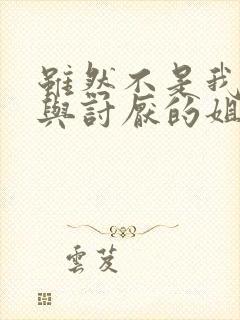 雖然不是我
與討厭的姐
雲芨